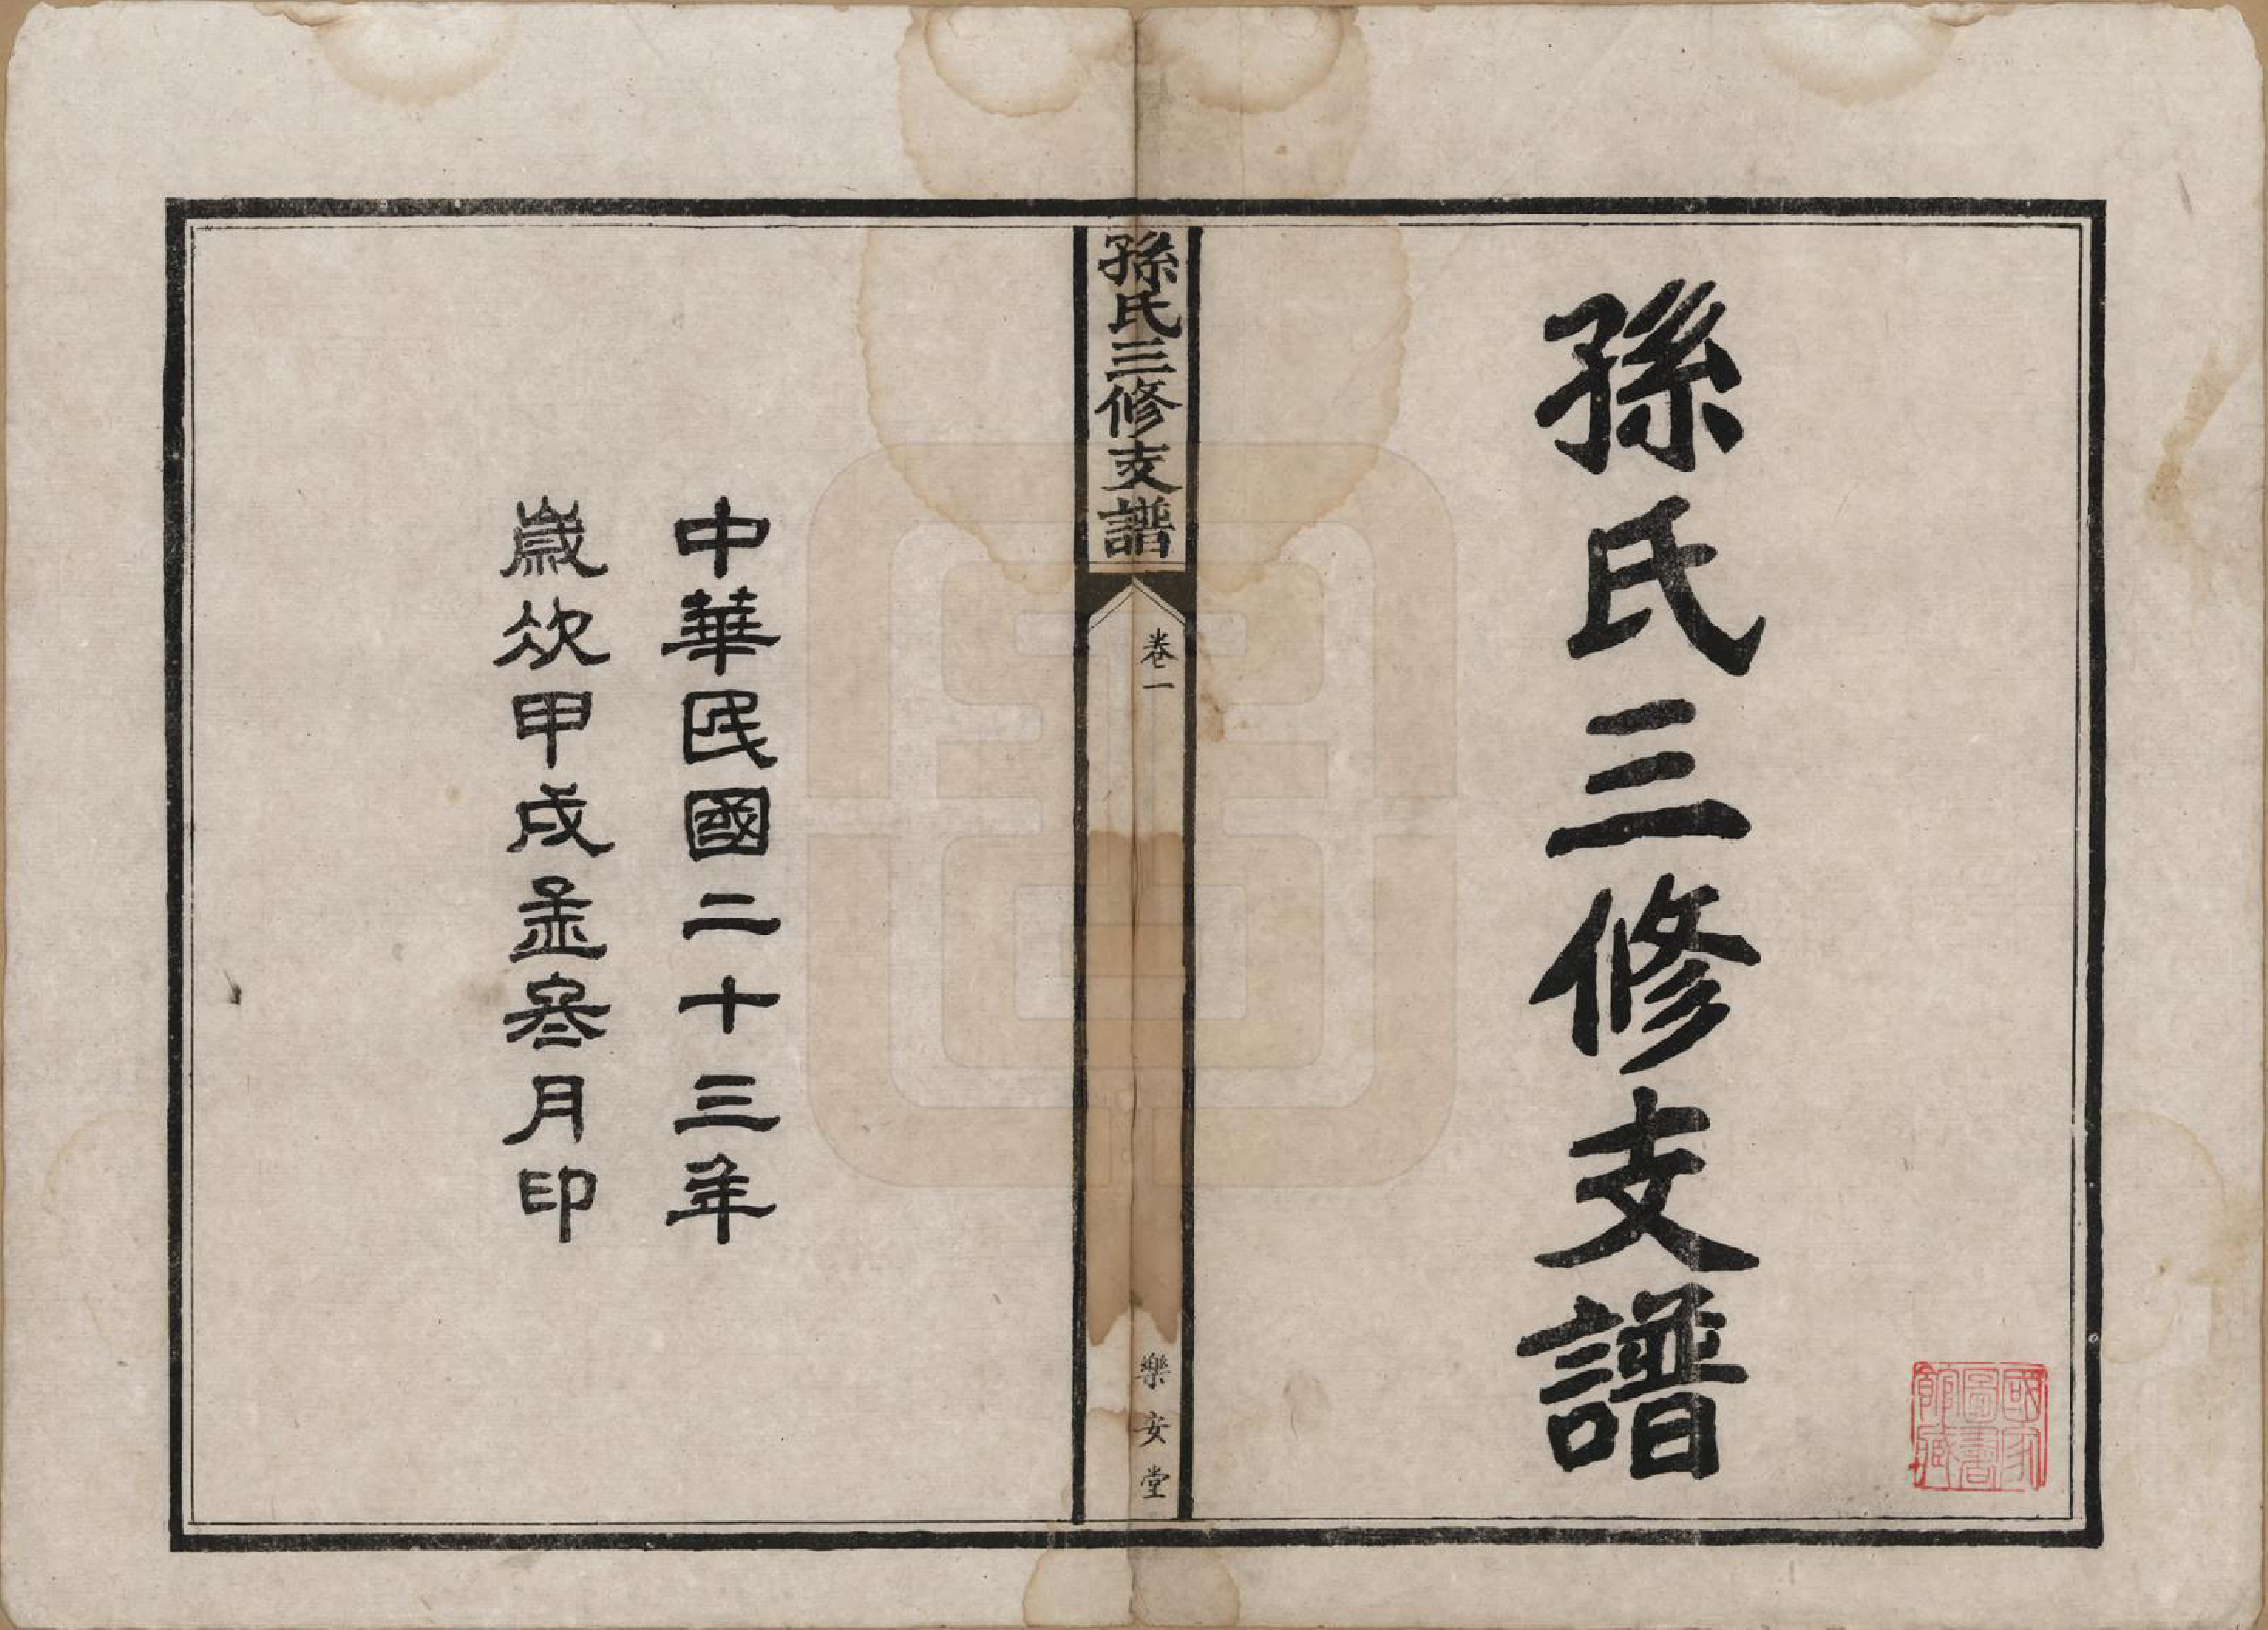 孫氏三修支譜
國家
圖書
館藏
孫氏三修支譜
卷一
樂安堂
中華民國二十三年
歲次甲戌孟叁月印